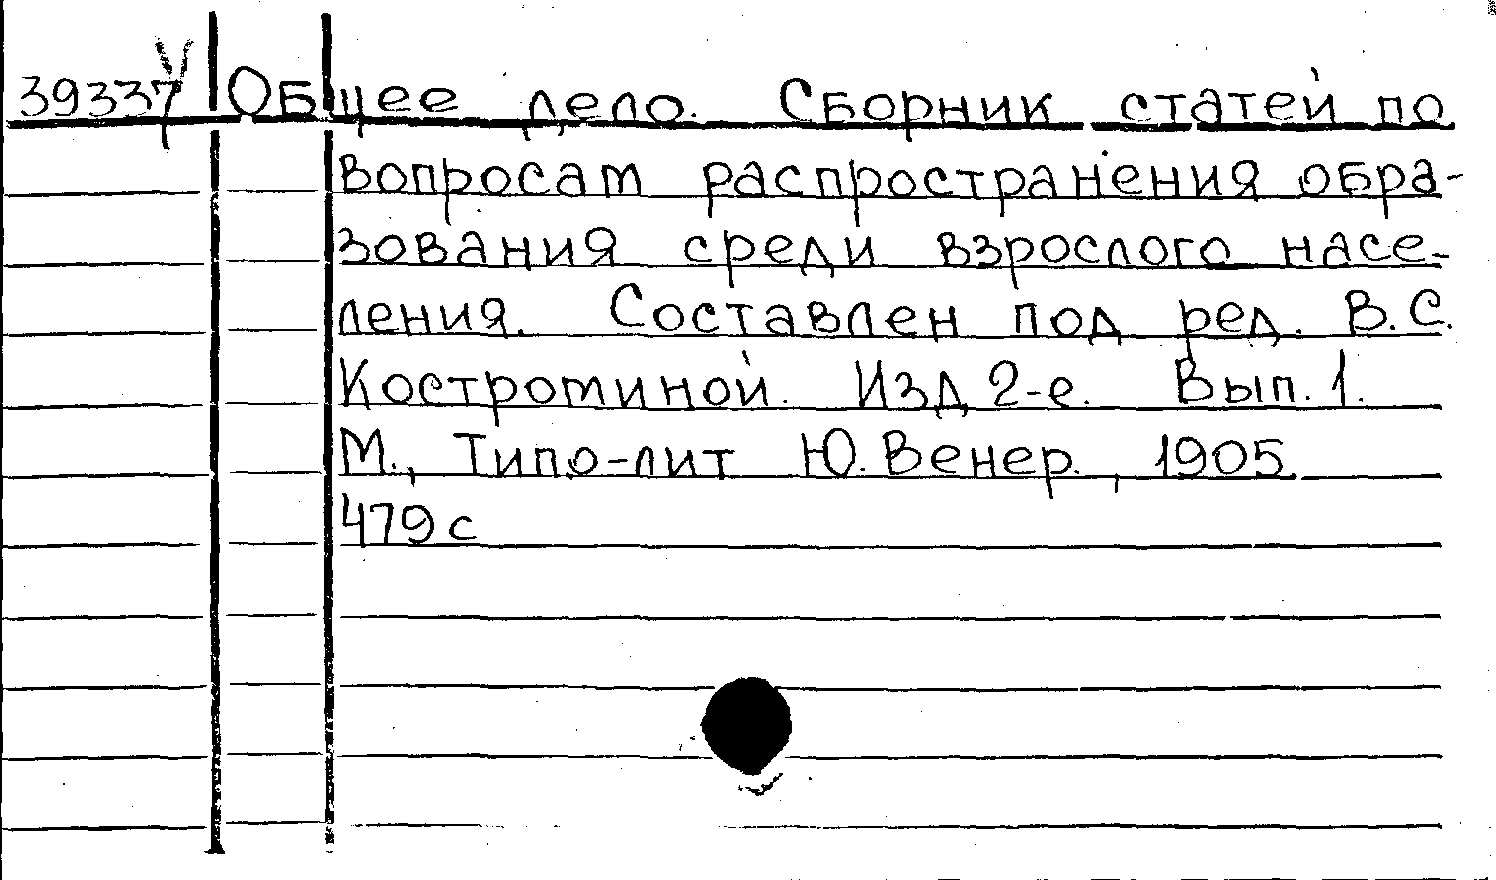 39337 Общее дело. Сборник статей по
вопросам распространения обра-
зования среди взрослого насе-
ления. Составлен под ред. В.С.
Костроминой. Изд 2-е. Вып. 1.
М., Типо-лит Ю. Венер., 1905
479 с